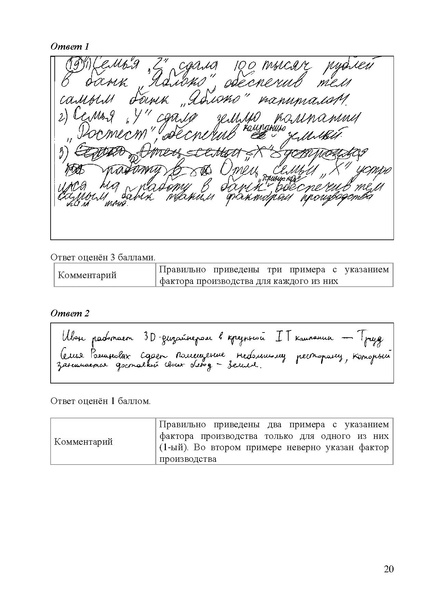 Ответ 1
19 1) Семья "Z" сдала 100 тысяч рублей
в банк "Яблоко", обеспечив тем
самым банк "Яблоко" капиталом.
2) Семья "Y" сдала землю компании
"Ростест", обеспечив компанию землёй
3) Отец семьи "X" устро
ился на работу в банк, обеспечив тем
самым банк таким фактором производства
как труд.
Ответ оценён 3 баллами.
Комментарий
Правильно приведены три примера с указанием
фактора производства для каждого из них
Ответ 2
Иван работает 3D-дизайнером в крупной IT компании — Труд
Семья Романовых сдает помещение небольшому ресторану, который
занимается доставкой своих блюд - Земля.
Ответ оценён 1 баллом.
Комментарий
Правильно приведены два примера с указанием
фактора производства только для одного из них
(1-ый). Во втором примере неверно указан фактор
производства
20